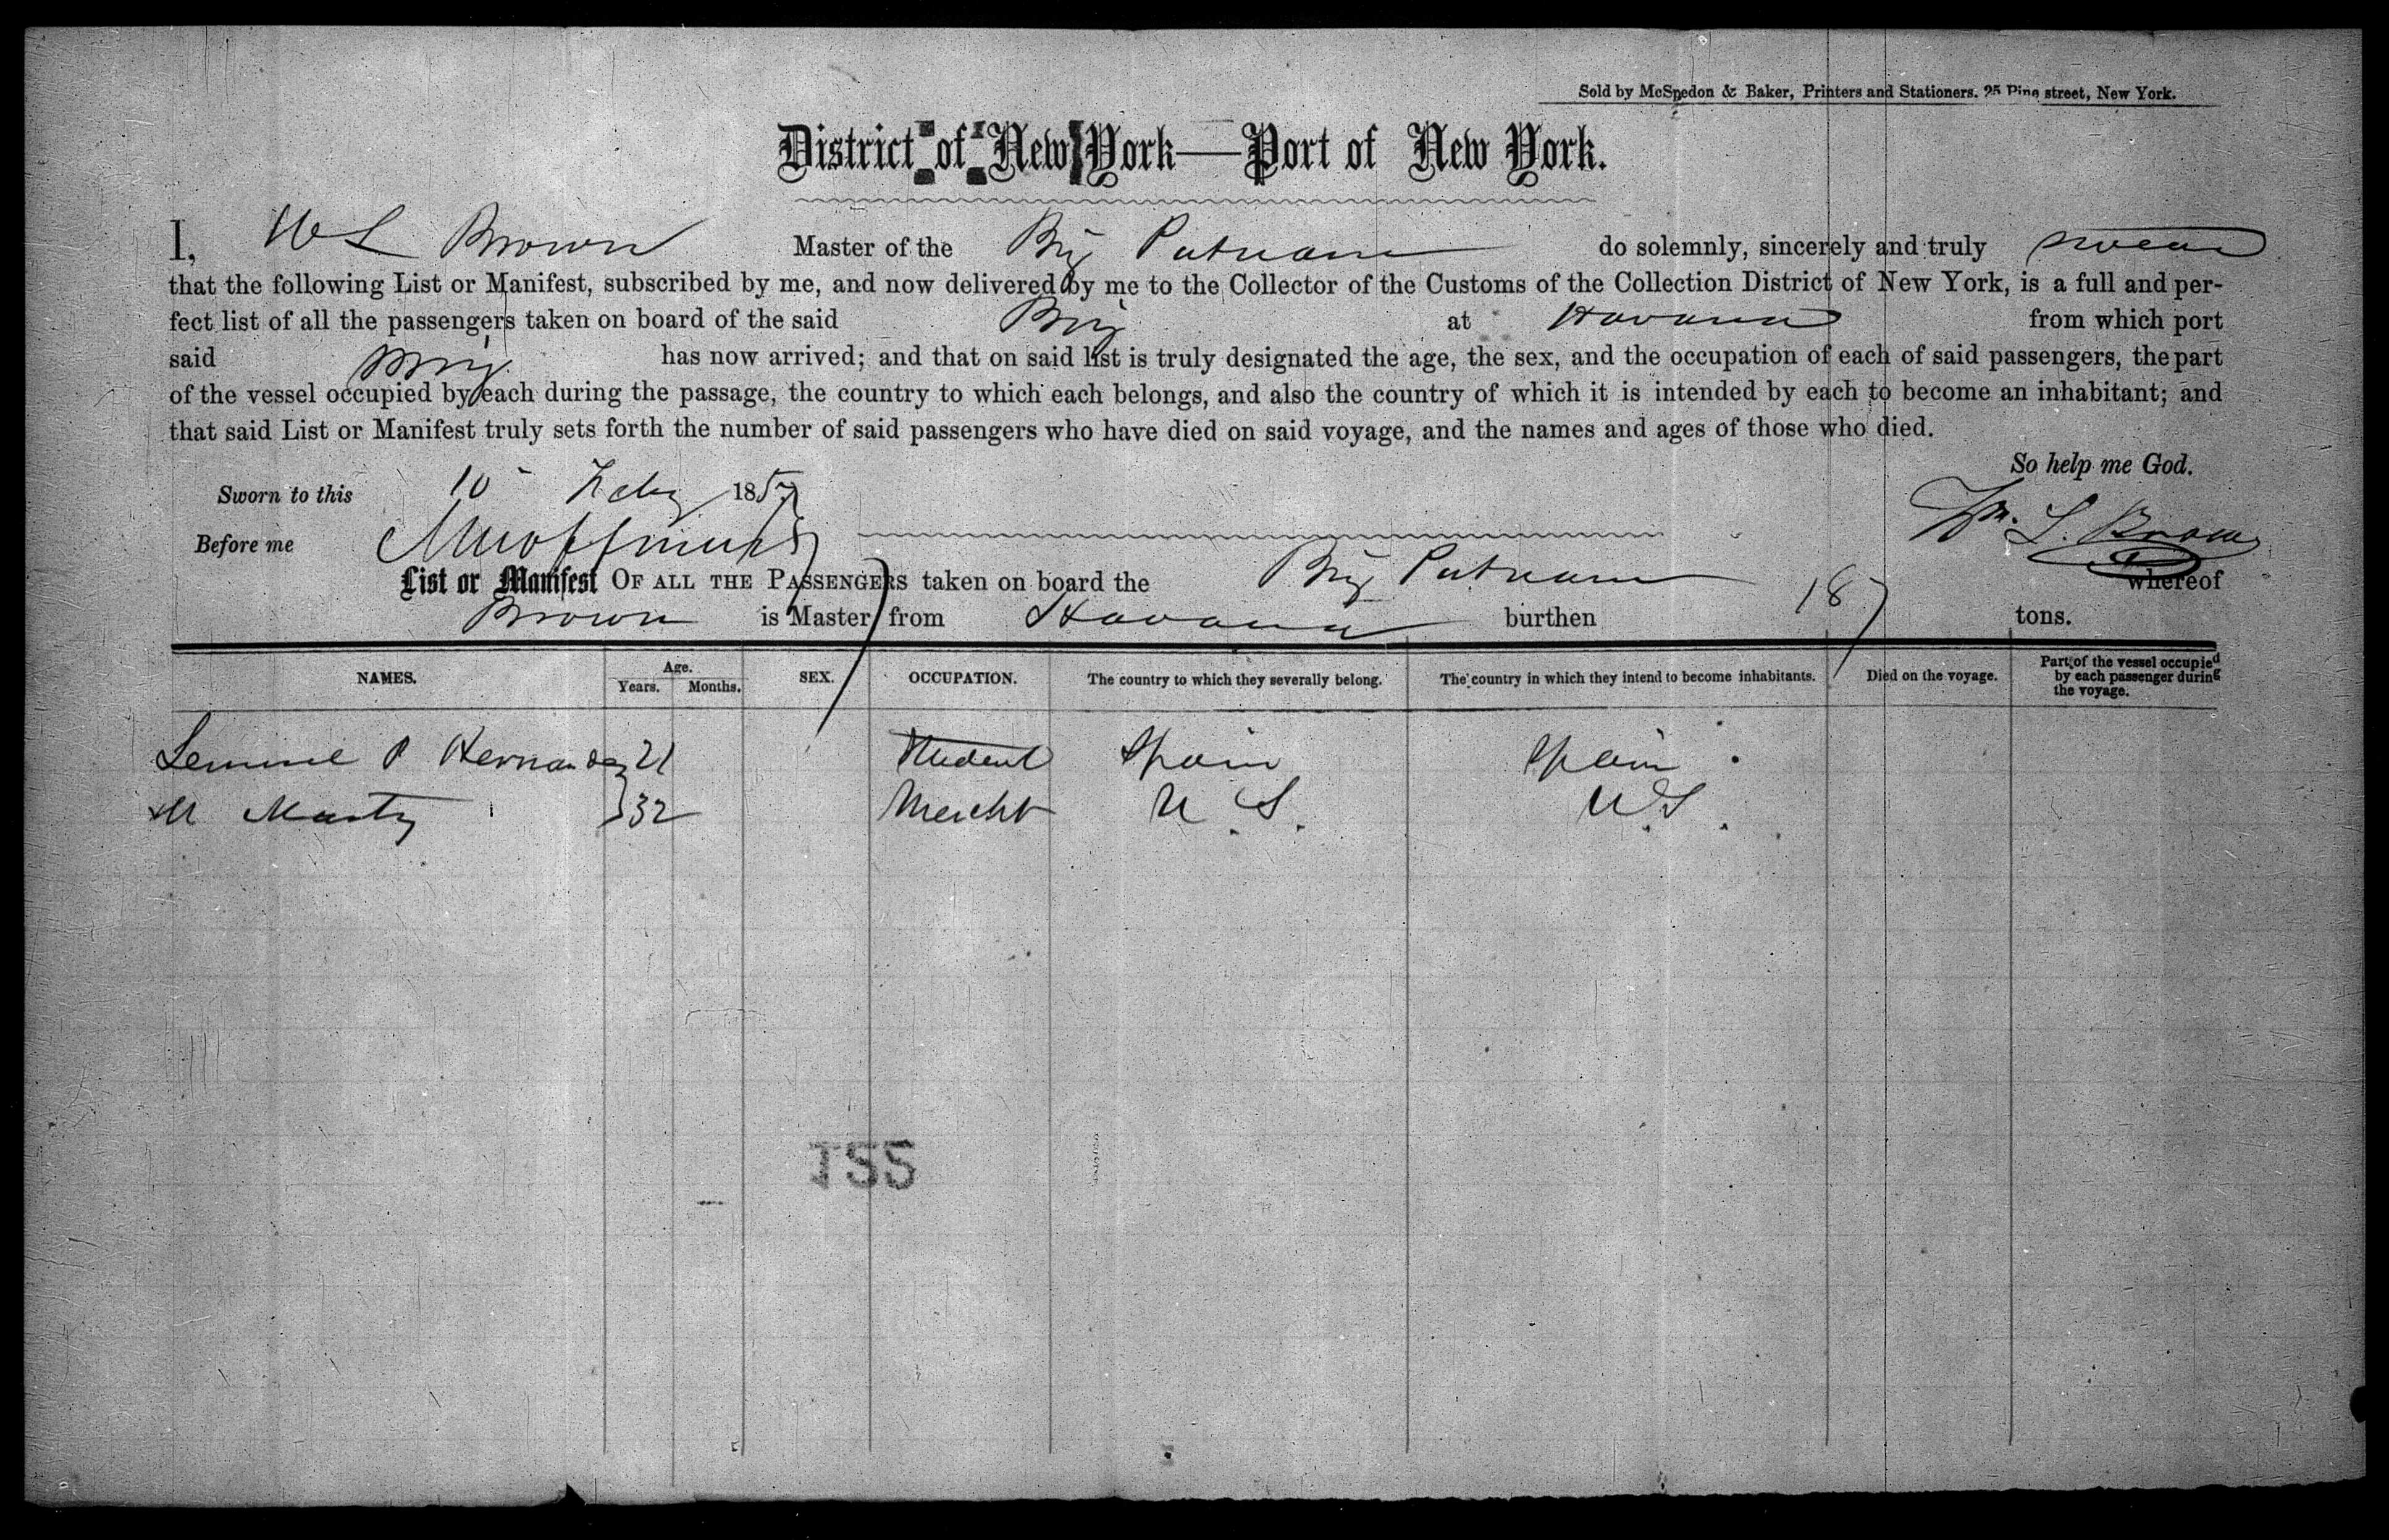 Sold by McSpedon & Baker, Printers and Stationers. 25 Pine street, New York.
District of New York—Port of New York.
I, W L Brown Master of the Brig Putnam do solemnly, sincerely and truly swear
that the following List or Manifest, subscribed by me, and now delivered by me to the Collector of the Customs of the Collection District of New York, is a full and per-
fect list of all the passengers taken on board of the said Brig at Havana from which port
said Brig has now arrived; and that on said list is truly designated the age, the sex, and the occupation of each of said passengers, the part
of the vessel occupied by each during the passage, the country to which each belongs, and also the country of which it is intended by each to become an inhabitant; and
that said List or Manifest truly sets forth the number of said passengers who have died on said voyage, and the names and ages of those who died.
So help me God.
Sworn to this 10 Feby 1857
Wm. L. Brown
Before me
List or Manifest OF ALL THE PASSENGERS taken on board the Brig Putnam whereof
Brown is Master from Havana burthen 187 tons.
NAMES. Age. Years. Months. SEX. OCCUPATION. The country to which they severally belong. The country in which they intend to become inhabitants. Died on the voyage. Part of the vessel occupied by each passenger during the voyage.
P Hernandez 21 Student Spain Spain
M 32 Mercht U.S. U.S.
155